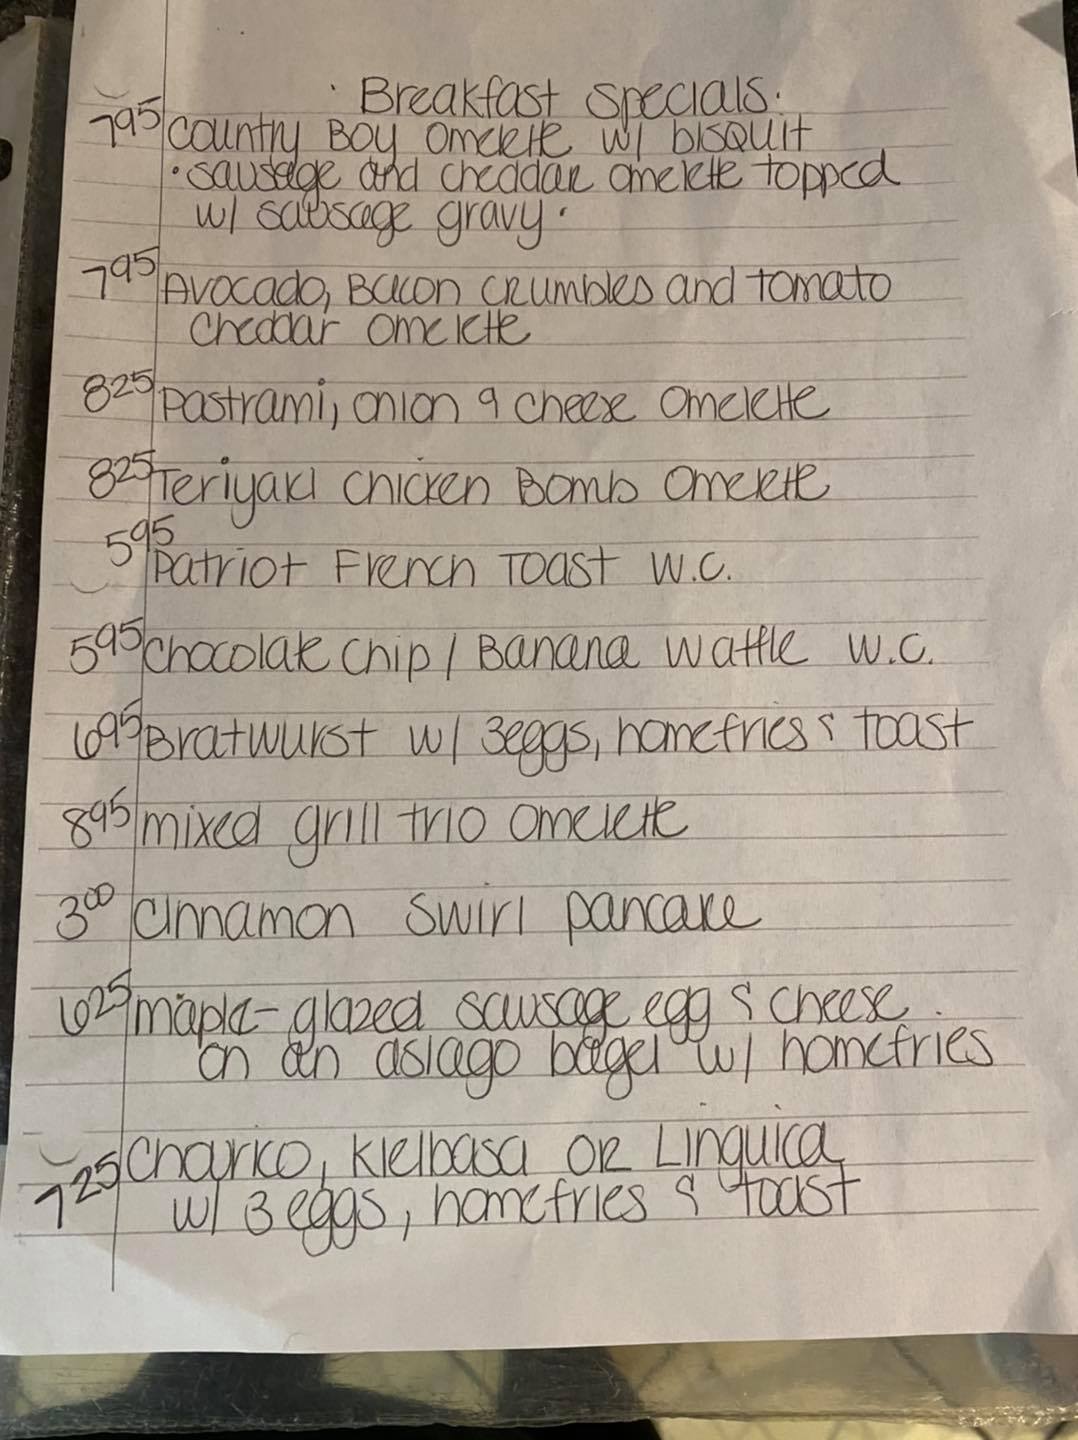 · Breakfast Specials·
795 Country Boy Omelette w/ bisquit
· sausage and cheddar omelette topped
w/ sausage gravy ·
795 Avocado, Bacon crumbles and tomato
cheddar omelette
825 Pastrami, onion & cheese Omelette
825 Teriyaki chicken Bomb Omelette
595 Patriot French Toast W.C.
595 Chocolate chip / Banana waffle W.C.
695 Bratwurst w/ 3eggs, homefries & toast
895 mixed grill trio omelette
300 cinnamon swirl pancake
625 maple-glazed sausage egg & cheese
on an asiago bagel w/ homefries
725 Chourico, Kielbasa OR Linguica
w/ 3 eggs, homefries & toast